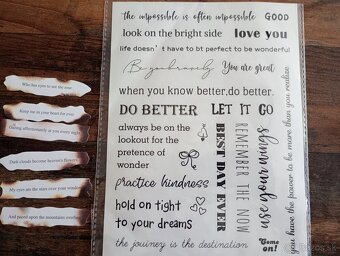 the impossible is often impossible GOOD
look on the bright side love you
life doesn't have to bt perfect to be wonderful
Be you bravely You are great
when you know better, do better.
DO BETTER LET IT GO
always be on the
lookout for the
pretence of
wonder
BEST DAY EVER
REMEMBER THE NOW
use your wings
you have the power to be more than you realise
practice kindness
hold on tight
to your dreams
the journey is the destination
Come on!
Who has eyes to see the rose
Keep me in your heart for ever
Gazing affectionately at you every night
Dark clouds become heaven's flowers
My eyes are the stars over your window
And paced upon the mountains overhead
bazos.sk